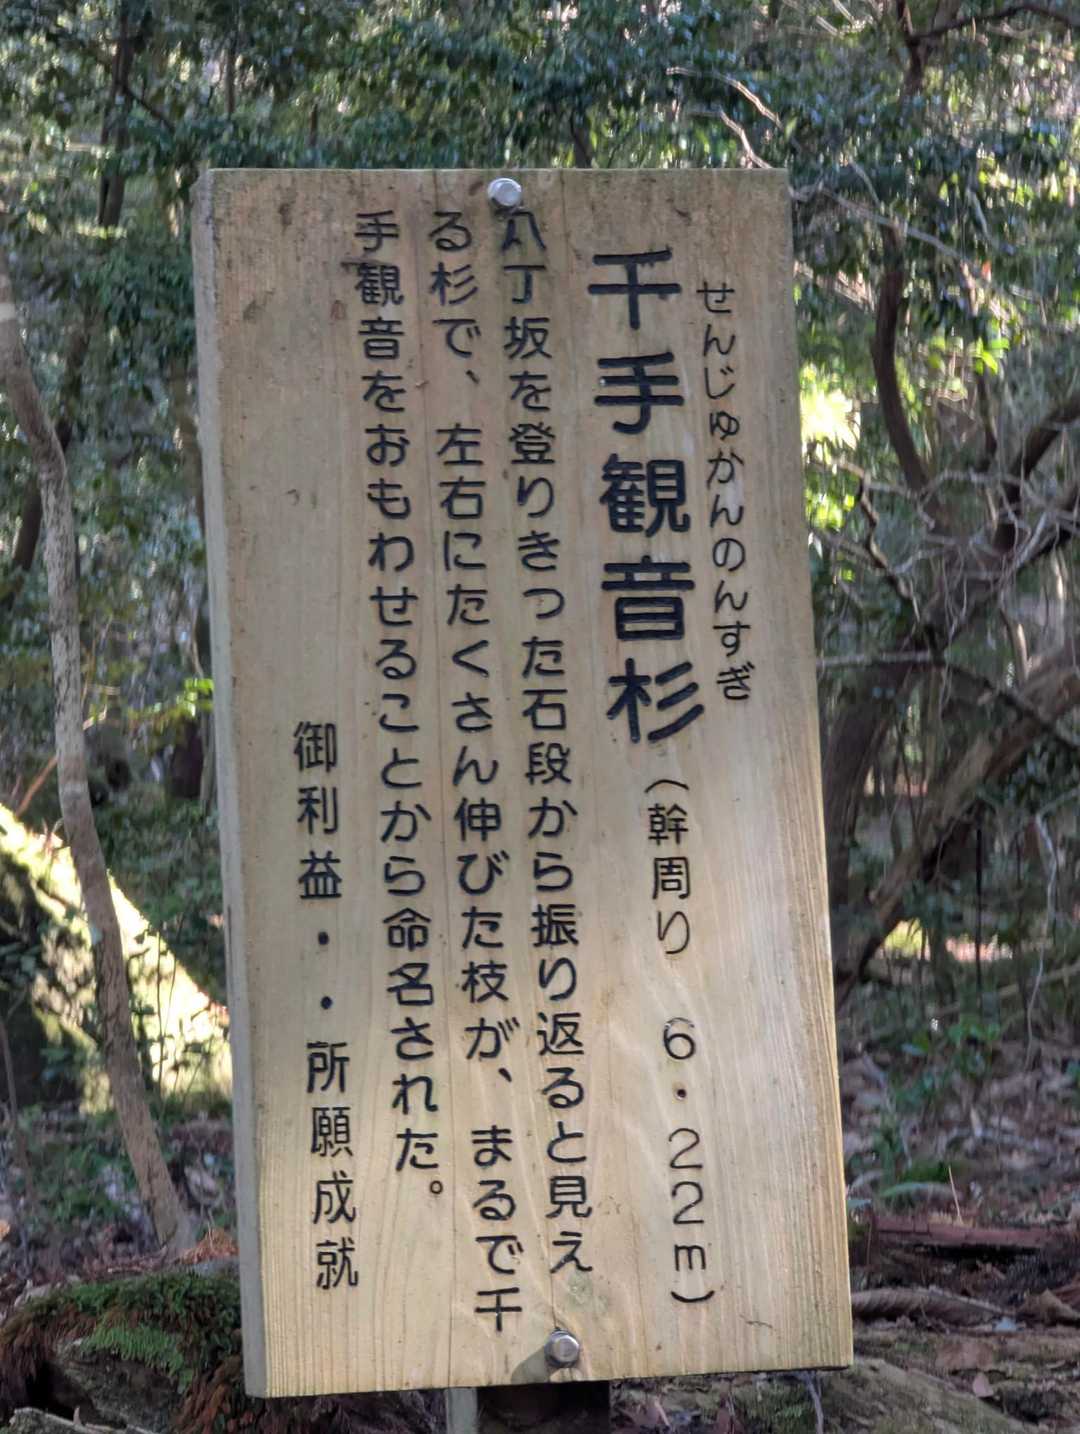 せんじゅかんのんすぎ
千手観音杉（幹周り 6・22m）
八丁坂を登りきった石段から振り返ると見え
る杉で、左右にたくさん伸びた枝が、まるで千
手観音をおもわせることから命名された。
御利益・・所願成就